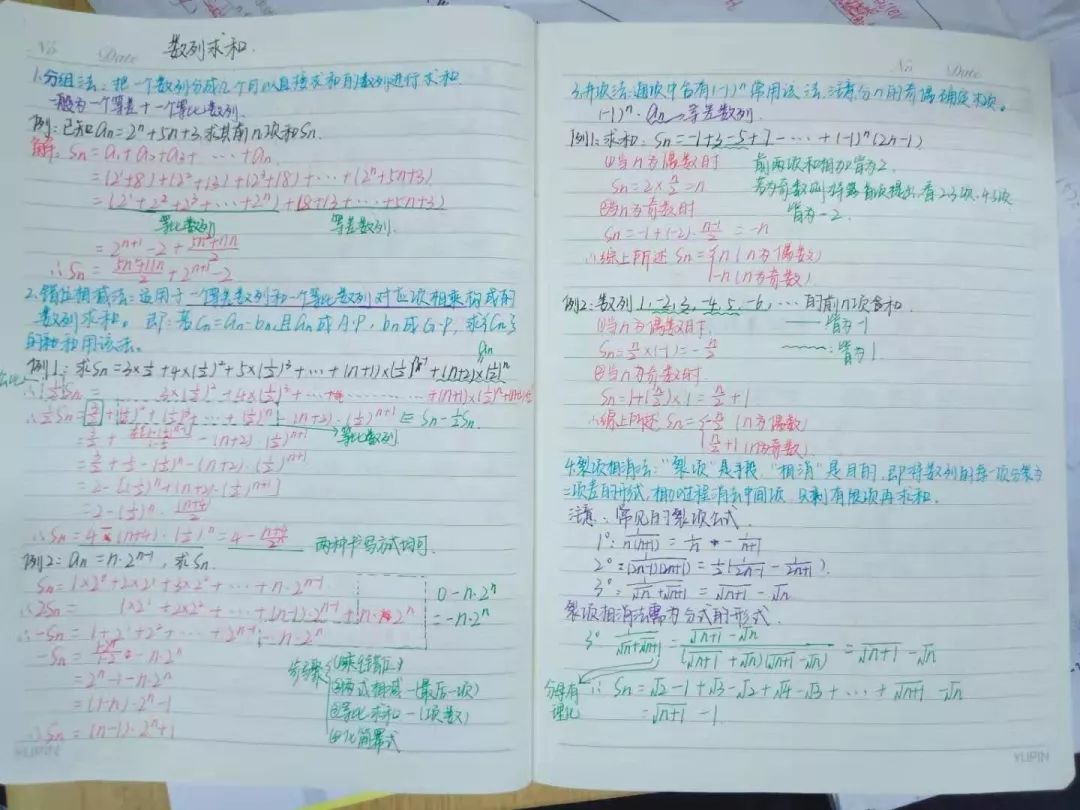 No
Date
数列求和.
1.分组法：把一个数列分成几个可以直接求和的数列进行求和
一般为一个等差+一个等比数列.
例：已知an=2^n+5n+3,求其前n项和Sn.
解：Sn=a1+a2+a3+……+an
=(2^1+8)+(2^2+13)+(2^3+18)+…+(2^n+5n+3)
=(2^1+2^2+2^3+…+2^n)+(8+13+…+5n+3)
等比数列 等差数列.
=2^(n+1)-2+(5n^2+11n)/2
∴Sn=(5n^2+11n)/2+2^(n+1)-2
2.错位相减法：适用于一个等差数列和一个等比数列对应项相乘构成的
数列求和。即：若Cn=an·bn,且an成A·P,bn成G·P,求{Cn}
的和用该法。
例1：求Sn=3×1/2+4×(1/2)^2+5×(1/2)^3+…+(n+1)×(1/2)^(n-1)+(n+2)×(1/2)^n
∴1/2Sn= 3×(1/2)^2+4×(1/2)^3+…… +(n+1)×(1/2)^n
∴1/2Sn=3/2+(1/2)^2+(1/2)^3+…+(1/2)^n-(n+2)·(1/2)^(n+1) Sn-1/2Sn.
等比数列
=3/2+1/2-(1/2)^n-(n+2)·(1/2)^(n+1)
=2-[(1/2)^n+(n+2)·(1/2)^(n+1)]
=2-(1/2)^n·(n+4)/2
∴Sn=4-(n+4)·(1/2)^n=4-(n+4)/2^n 两种书写方式均可.
例2：an=n·2^(n-1),求Sn.
Sn=1×2^0+2×2^1+3×2^2+…+n·2^(n-1)
∴2Sn= 1×2^1+2×2^2+…+(n-1)·2^(n-1)+n·2^n
0-n·2^n
=-n·2^n
∴-Sn=1+2^1+2^2+…+2^(n-1)-n·2^n
-Sn=(1-2^n)/(1-2)-n·2^n
=2^n-1-n·2^n
=(1-n)·2^n-1
∴Sn=(n-1)·2^n+1
步骤
①乘公比(错位)
②两式相减-(最后一项)
③等比求和-(项数)
④化简幂式
YLIPIN
No
Date
3.并项法：每项中含有(-1)^n常用该法,注意分n的奇偶确定末项。
(-1)^n·an→等差数列.
例1：求和：Sn=-1+3-5+7-……+(-1)^n(2n-1)
①当n为偶数时 前两项和相加皆为2.
Sn=2×n/2=n
②当n为奇数时
皆为-2.
Sn=-1+(-2)·(n-1)/2=-n
∴综上所述 Sn={n(n为偶数)
-n(n为奇数)
例2：数列1,-2,3,-4,5,-6,…的前n项和
①当n为偶数时. ——皆为-1
Sn=n/2×(-1)=-n/2 ~~~~：皆为1.
②当n为奇数时.
∴综上所述 Sn={-n/2(n为偶数)
(n为奇数).
4.裂项相消法："裂项"是手段,"相消"是目的,即将数列的每一项分裂为
二项差的形式,相加过程消去中间项,只剩有限项再求和.
注意：常见的裂项公式.
1°：1/n(n+1)=1/n-1/(n+1)
2°：1/(2n-1)(2n+1)=1/2(1/(2n-1)-1/(2n+1)).
3°：1/(√n+√(n+1))=√(n+1)-√n
裂项相消法需为分式的形式.
3° 1/(√n+√(n+1))=(√(n+1)-√n)/((√(n+1)+√n)(√(n+1)-√n))=√(n+1)-√n
分母有
理化
∴Sn=√2-1+√3-√2+√4-√3+…+√(n+1)-√n
=√(n+1)-1.
YLIPIN